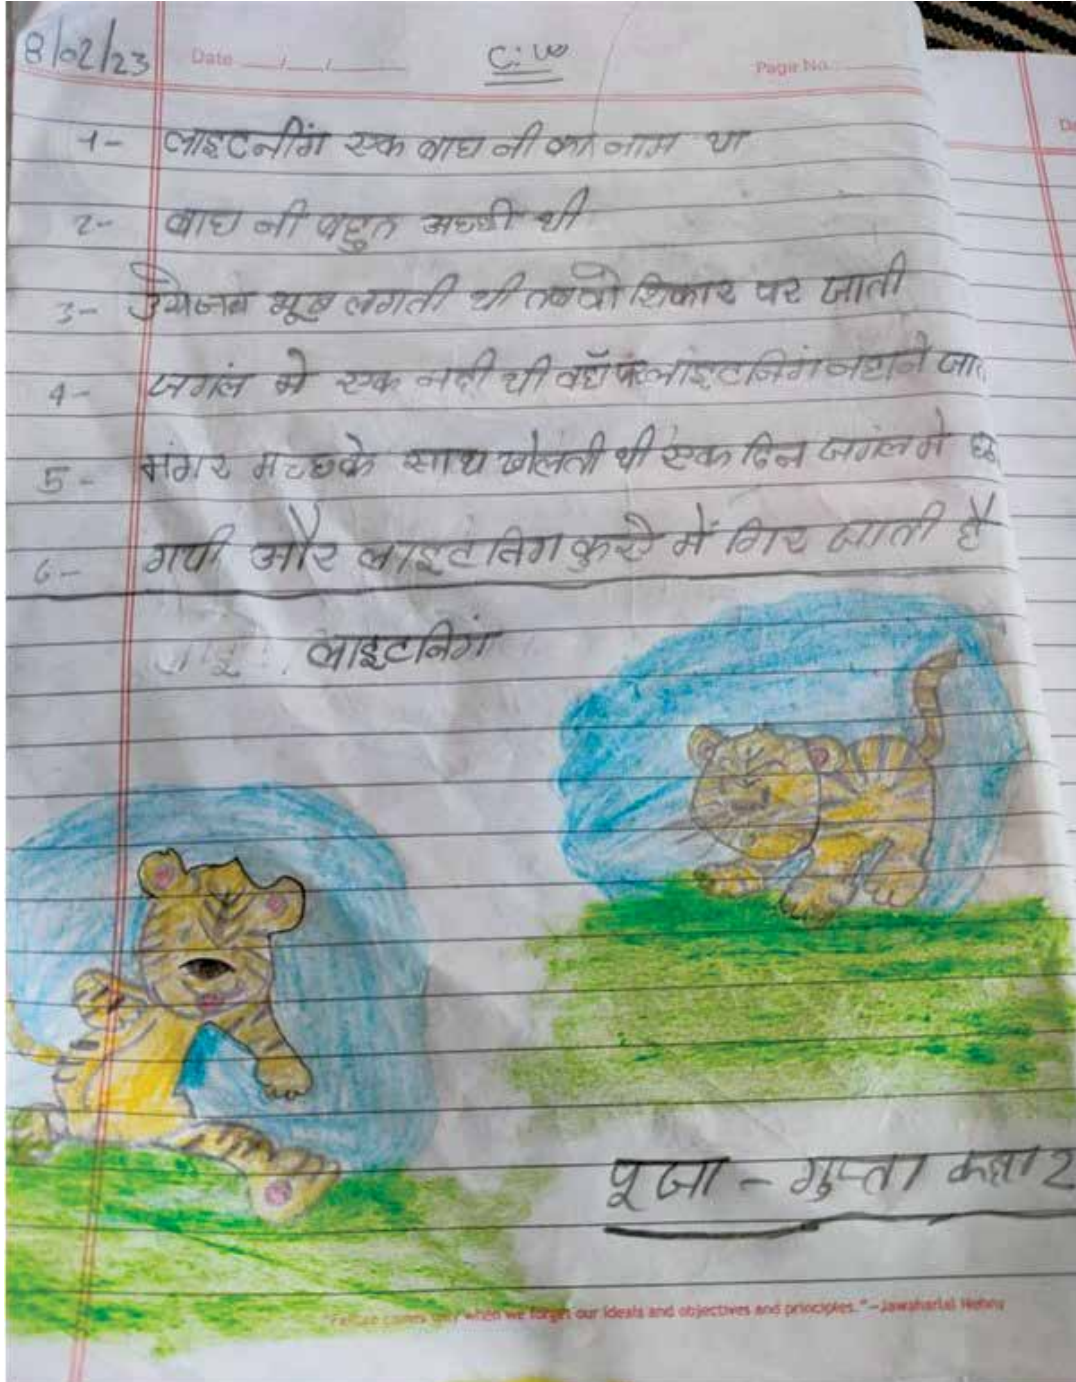 8/02/23 Date __/__/____ C.W Page No.
1- लाइटनींग एक बाघ नी का नाम था
2- बाघ नी बहुत अच्छी थी
3- उसेजब भूख लगती थी तबवो शिकार पर जाती
4- जगंल मे एक नदी थी वहाँ पे लाइटनिंग नहाने जा
5- मंगर मच्छके साथ खेलती थी एक दिन जगंल मे
6- गयी और लाइटनिग कुएे में गिर जाती है
लाइटनिगं
पूजा - गुप्ता कक्षा 2
"Failure comes only when we forget our ideals and objectives and principles." -Jawaharlal Nehru